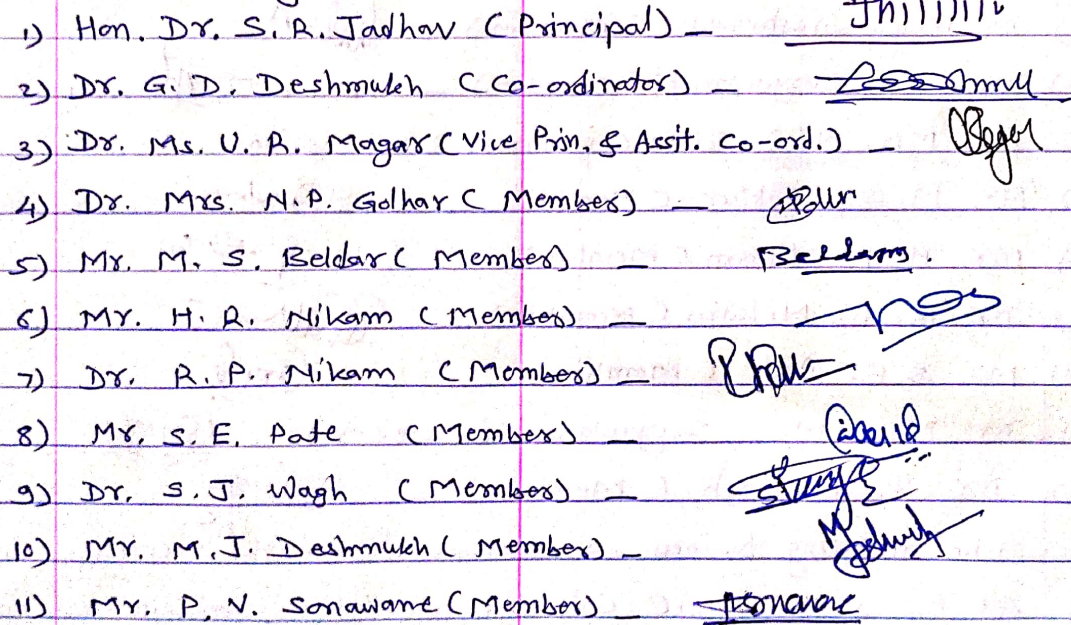 1) Hon. Dr. S. R. Jadhav (Principal) —
2) Dr. G. D. Deshmukh (Co-ordinator) —
3) Dr. Ms. U. R. Magar (Vice Prin. & Assit. Co-ord.) —
4) Dr. Mrs. N. P. Golhar (Member) —
5) Mr. M. S. Beldar (Member) — Beldarms.
6) Mr. H. R. Nikam (Member) —
7) Dr. R. P. Nikam (Member) —
8) Mr. S. E. Pate (Member) —
9) Dr. S. J. Wagh (Member) —
10) Mr. M. J. Deshmukh (Member) —
11) Mr. P. V. Sonawane (Member) —